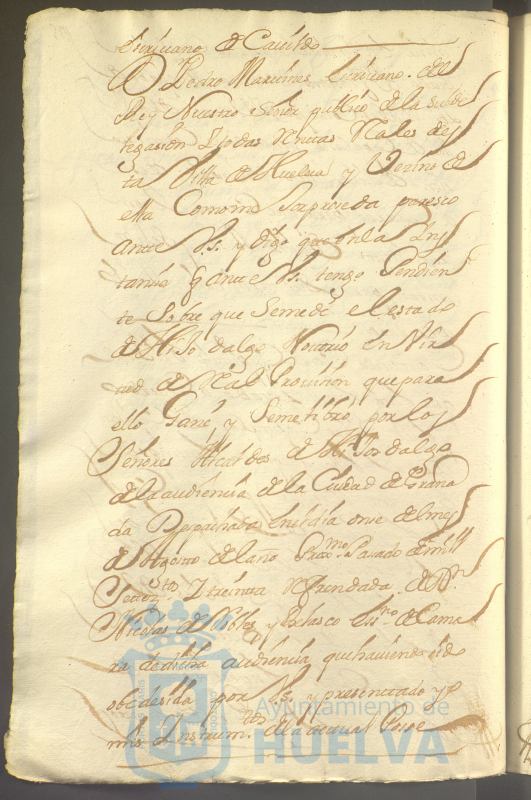 escrivano de Cavildo
Dn Pedro Martines escrivano del
Rey Nuestro Señor publico de la subde
legasion y todas Rentas Reales des
ta Villa de Huelva y Vezino de
ella Como mas proseda paresco
ante Vs. y digo que en la Yns
tansia q ante Vs. tengo Pendien
te sobre que se me dé el estado
de Hijo dalgo Notorio en Vir
tud de Real Provision que para
ello Gané y se me libró por los
Señores Alcaldes de Hijos dalgo
de la audiencia de la Ciudad de Grana
da Despachada en el dia onse del mes
de Agosto del año Proxmo Pasado de mill
Setezsto y treinta Refrendada de Dn
Nicolas de Robles y Velasco Essno de Cama
ra de dicha audiencia que haviendo sido
obedesida por Vs. y presentado yo
mis Instrumtos de la actual Pose
Ayuntamiento de
HUELVA